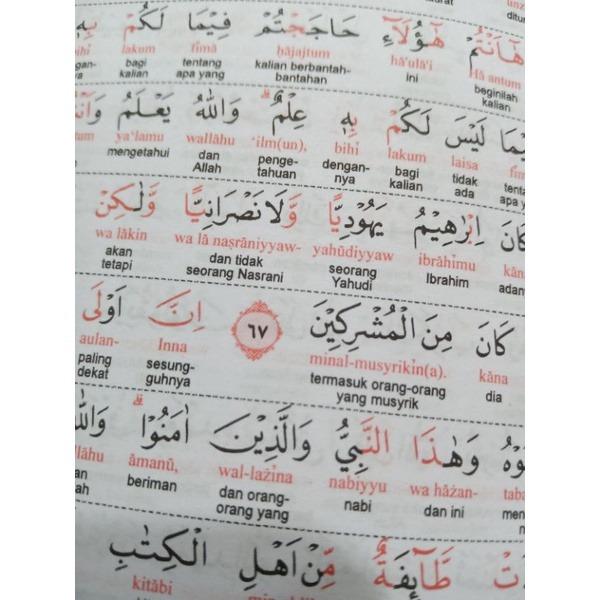 هَٰٓأَنْتُمْ هَٰٓؤُلَاۤءِ حَاجَجْتُمْ فِيْمَا لَكُمْ بِهٖ
Hā antum hā'ulā'i ḥājajtum fīmā lakum bihī
beginilah kalian ini kalian berbantah-bantahan tentang apa yang bagi kalian dengan-
لَيْسَ لَكُمْ بِهٖ عِلْمٌ ۗ وَاللّٰهُ يَعْلَمُ
laisa lakum bihī 'ilm(un), wallāhu ya'lamu
tidak ada bagi kalian dengan-nya penge-tahuan dan Allah mengetahui
كَانَ اِبْرٰهِيْمُ يَهُوْدِيًّا وَّلَا نَصْرَانِيًّا وَّلٰكِنْ
ibrāhīmu yahūdiyyaw- wa lā naṣrāniyyaw- wa lākin
Ibrahim seorang Yahudi dan tidak seorang Nasrani akan tetapi
كَانَ مِنَ الْمُشْرِكِيْنَ ٦٧ اِنَّ اَوْلَى
kāna minal-musyrikīn(a). Inna aulan-
dia termasuk orang-orang yang musyrik sesung-guhnya paling dekat
وَهٰذَا النَّبِيُّ وَالَّذِيْنَ اٰمَنُوْا ۗ
wa hāżan- nabiyyu wal-lażīna āmanū,
dan ini nabi dan orang-orang yang beriman
طَّاۤىِٕفَةٌ مِّنْ اَهْلِ الْكِتٰبِ
kitābi